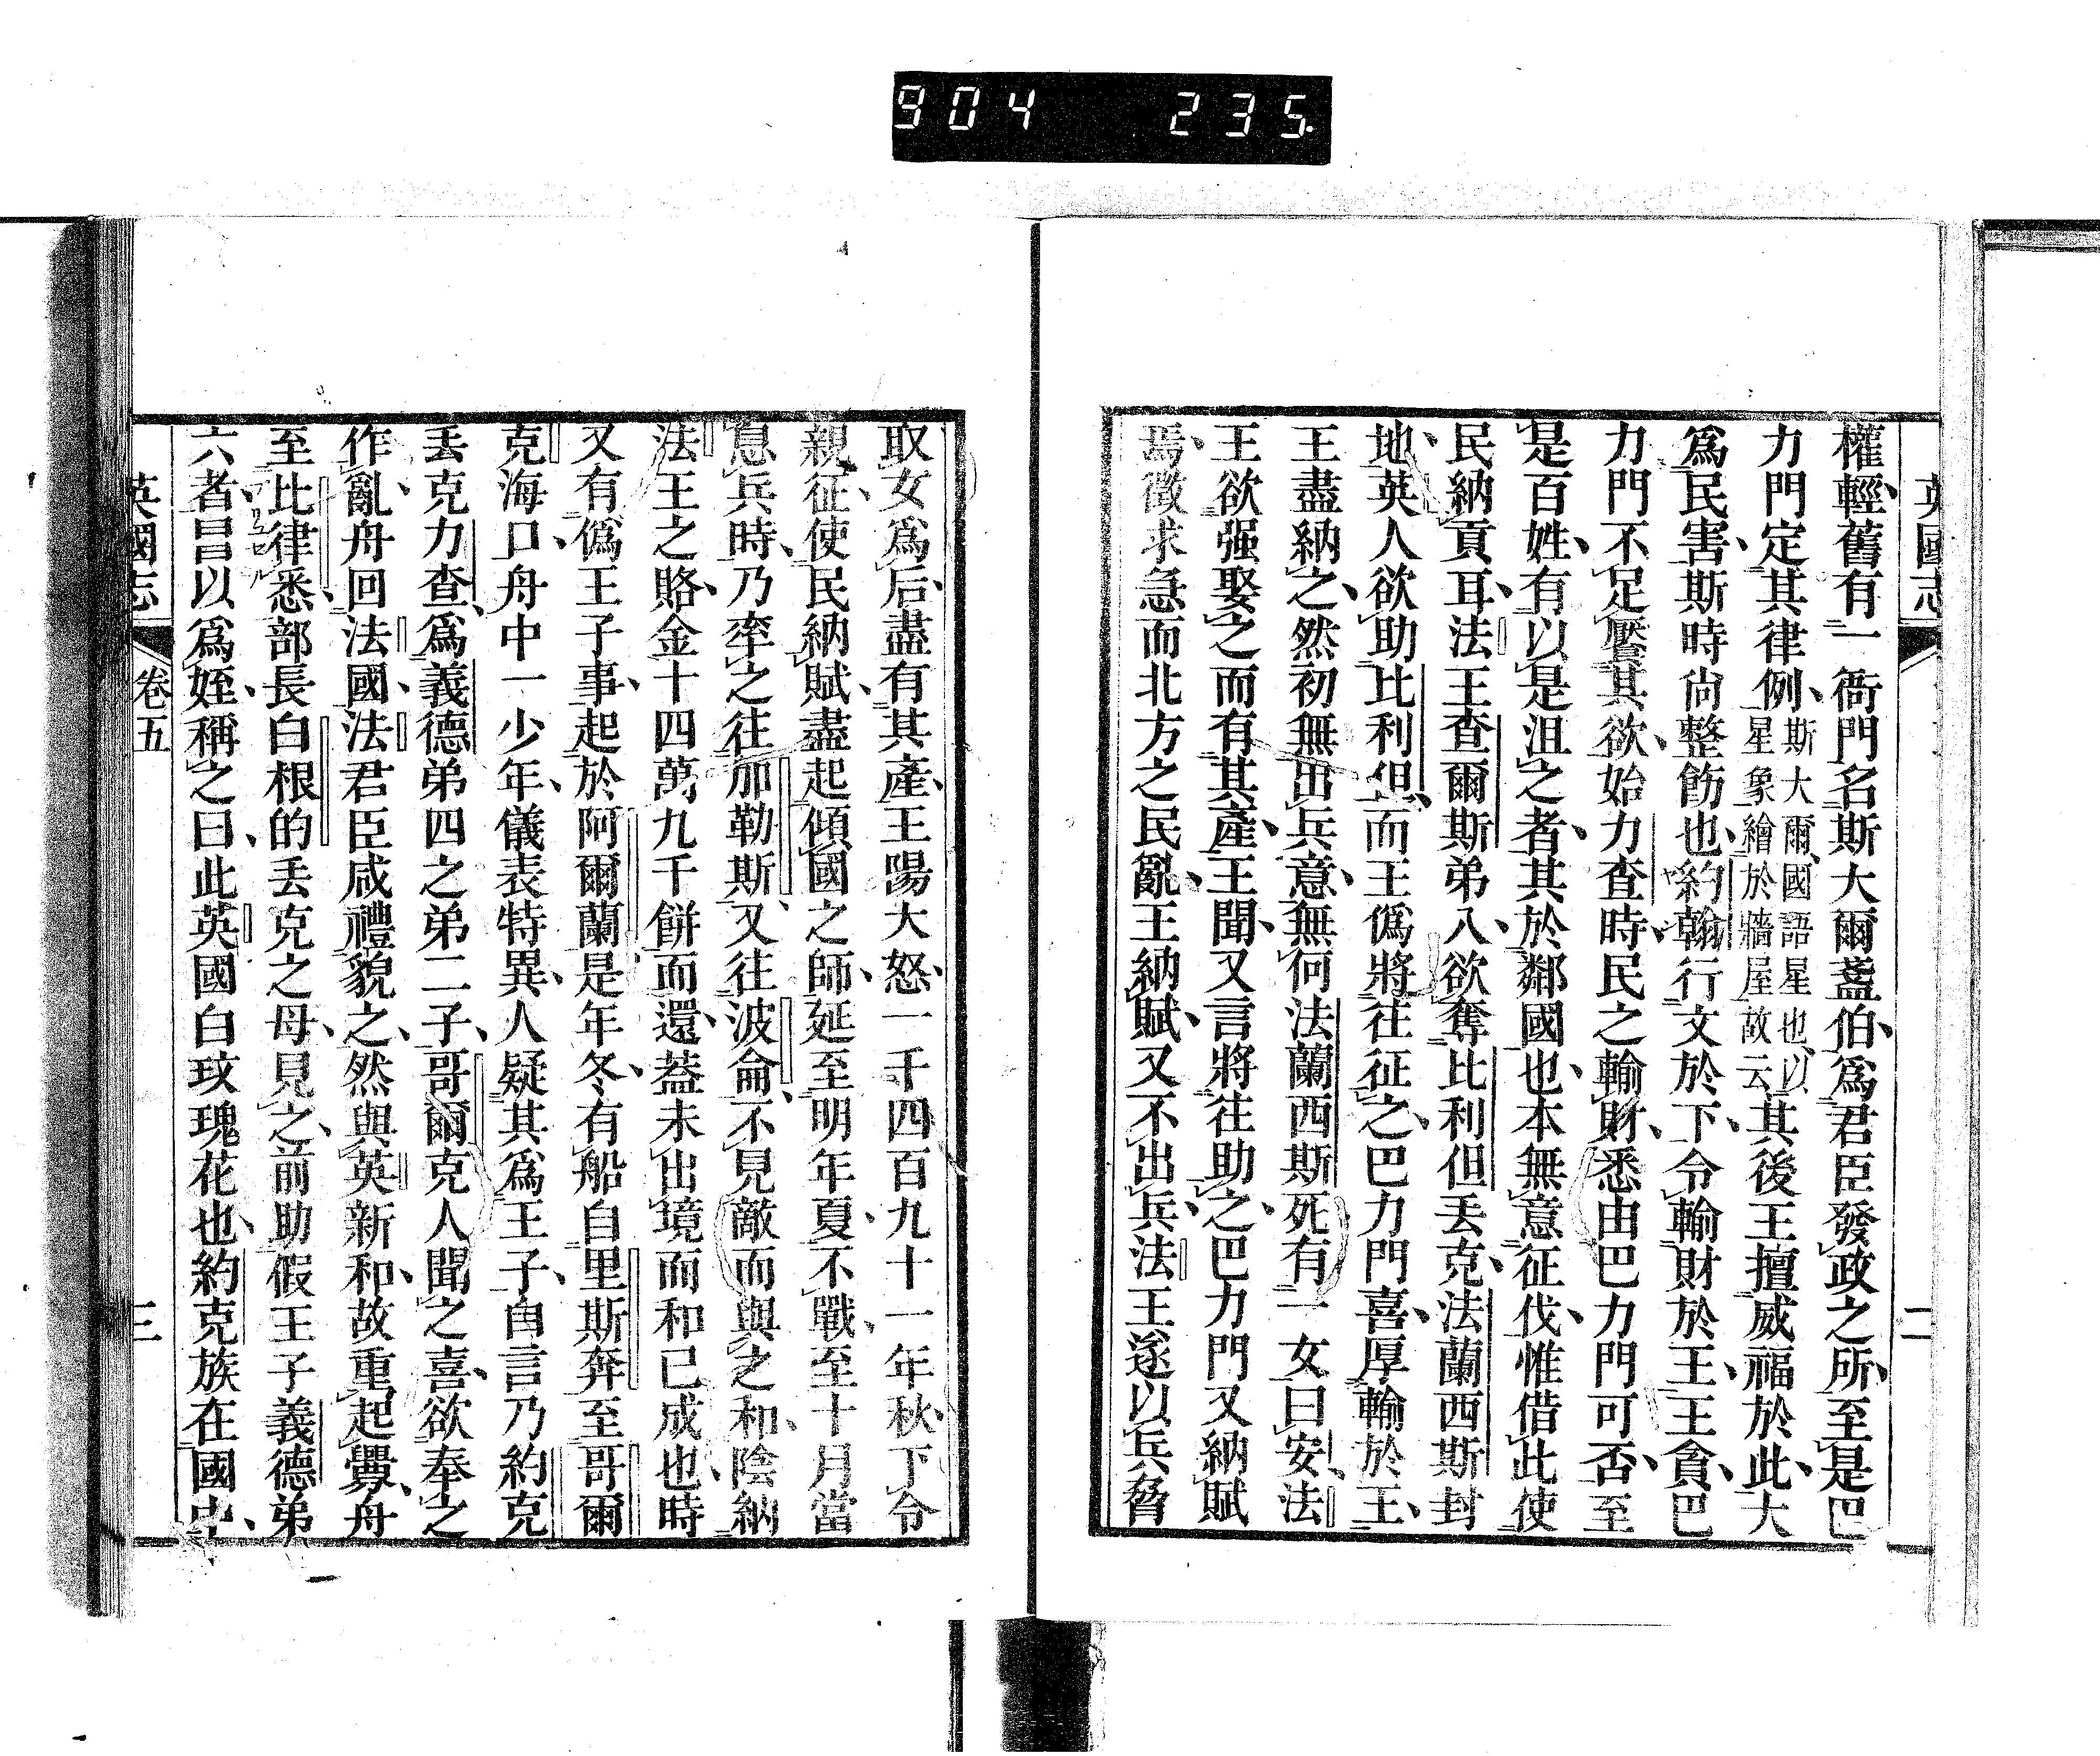 904 235
英國志
二
權輕舊有一衙門名斯大爾盞伯爲君臣發政之所至是巴
力門定其律例斯大爾國語星也以星象繪於牆屋故云其後王擅威福於此大
爲民害斯時尙整飭也約翰行文於下令輸財於王王貪巴
力門不足壓其欲始力查時民之輸財悉由巴力門可否至
是百姓有以是沮之者其於鄰國也本無意征伐惟借此使
民納貢耳法王查爾斯弟八欲奪比利但丢克法蘭西斯封
地英人欲助比利但而王僞將往征之巴力門喜厚輸於王
王盡納之然初無出兵意無何法蘭西斯死有一女曰安法
王欲强娶之而有其產王聞又言將往助之巴力門又納賦
焉徵求急而北方之民亂王納賦又不出兵法王遂以兵脅
取女爲后盡有其產王陽大怒一千四百九十一年秋下令
親征使民納賦盡起傾國之師延至明年夏不戰至十月當
息兵時乃率之往那勒斯又往波侖不見敵而與之和陰納
法王之賂金十四萬九千餅而還葢未出境而和已成也時
又有僞王子事起於阿爾蘭是年冬有船自里斯奔至哥爾
克海口舟中一少年儀表特異人疑其爲王子自言乃約克
丢克力查爲義德弟四之弟二子哥爾克人聞之喜欲奉之
作亂舟回法國法君臣咸禮貌之然與英新和故重起釁舟
至比律悉部長白根的丢克之母見之前助假王子義德弟
六者昌以爲姪稱之曰此英國白玫瑰花也約克族在國中
英國志
卷五
三